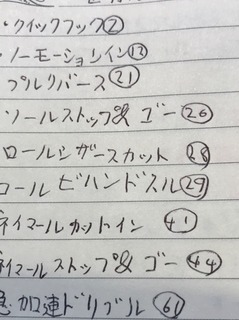 ・クイックフック②
・ノーモーションイン⑫
プルリバース㉑
ソールストップ& ゴー㉖
ロールシザースカット㉘
ロールビハンドスル㉙
ネイマールカットイン㊶
ネイマールストップ& ゴー㊹
急加速ドリブル㉛